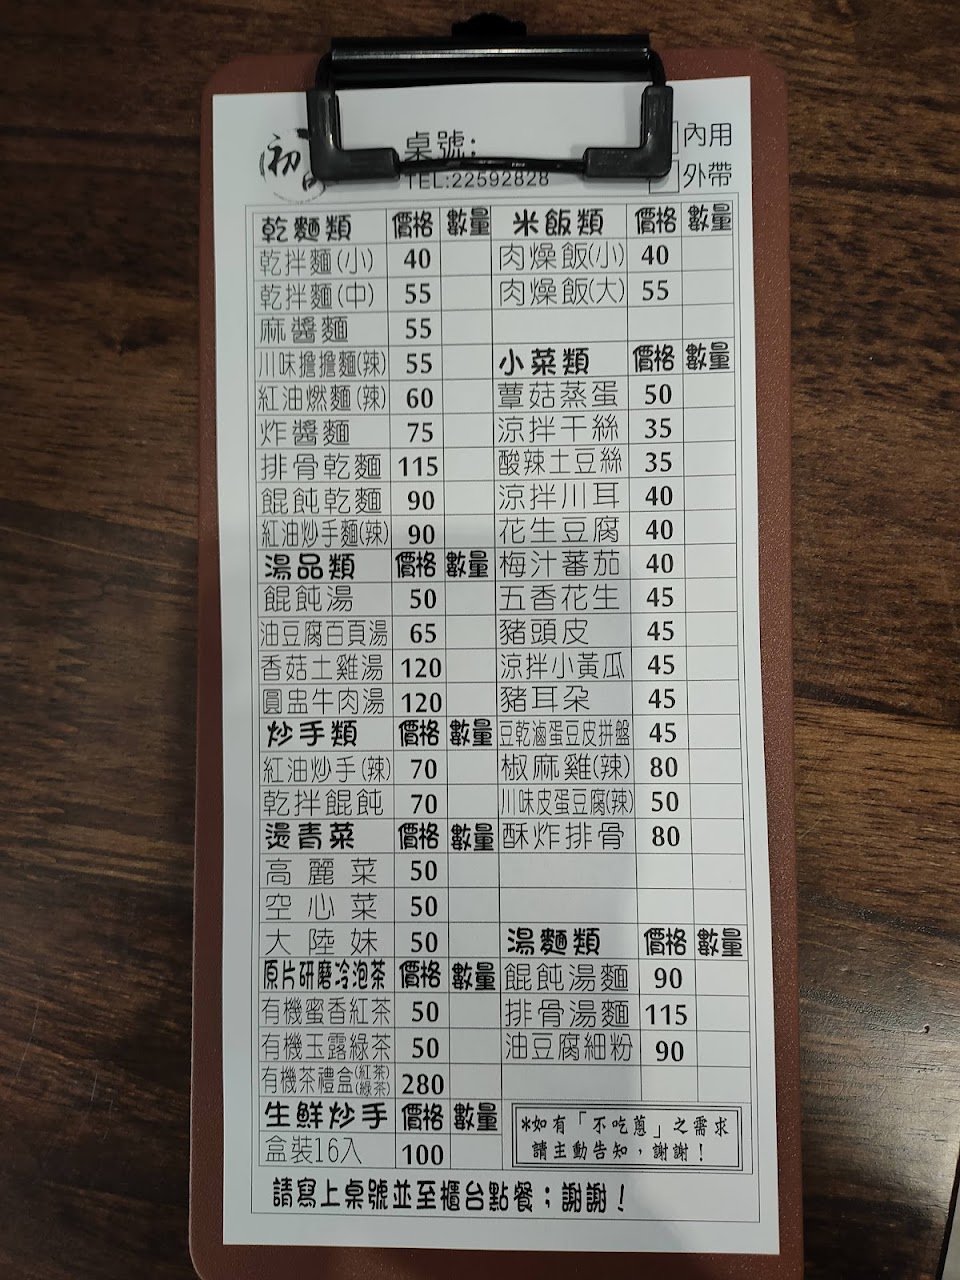 初
桌號:
內用
TEL:22592828
外帶
乾麵類 價格 數量
乾拌麵(小) 40
乾拌麵(中) 55
麻醬麵 55
川味擔擔麵(辣) 55
紅油燃麵(辣) 60
炸醬麵 75
排骨乾麵 115
餛飩乾麵 90
紅油炒手麵(辣) 90
湯品類 價格 數量
餛飩湯 50
油豆腐百頁湯 65
香菇土雞湯 120
圓盅牛肉湯 120
炒手類 價格 數量
紅油炒手(辣) 70
乾拌餛飩 70
燙青菜 價格 數量
高麗菜 50
空心菜 50
大陸妹 50
原片研磨冷泡茶 價格 數量
有機蜜香紅茶 50
有機玉露綠茶 50
有機茶禮盒(紅茶)(綠茶) 280
生鮮炒手 價格 數量
盒裝16入 100
米飯類 價格 數量
肉燥飯(小) 40
肉燥飯(大) 55
小菜類 價格 數量
蕈菇蒸蛋 50
涼拌干絲 35
酸辣土豆絲 35
涼拌川耳 40
花生豆腐 40
梅汁蕃茄 40
五香花生 45
豬頭皮 45
涼拌小黃瓜 45
豬耳朵 45
豆乾滷蛋豆皮拼盤 45
椒麻雞(辣) 80
川味皮蛋豆腐(辣) 50
酥炸排骨 80
湯麵類 價格 數量
餛飩湯麵 90
排骨湯麵 115
油豆腐細粉 90
*如有「不吃蔥」之需求
請主動告知，謝謝！
請寫上桌號並至櫃台點餐；謝謝！